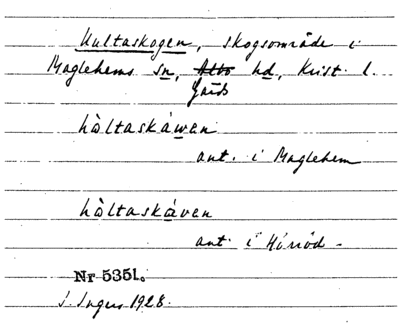 Hultaskogen, skogsområde i
Maglehems sn, Albo hd, Krist. l.
Gärds
hòltaskáwen
ant. i Maglehem
hòltaskáven
ant. i Hörröd -
Nr 5351.
J. Ingers 1928.